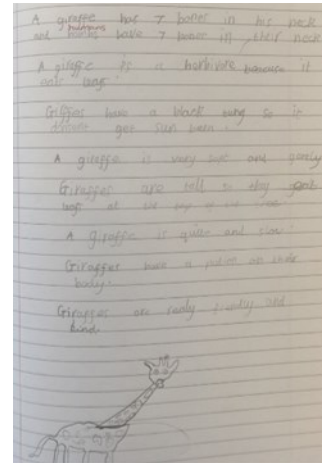 A giraffe has 7 bones in his neck
and humans have 7 bones in their neck
A giraffe is a horbivore because it
eats leafs.
Giraffes have a black tung so it
get sun burn.
A giraffe is very soft and
Giraffes are tall so they
leafs at the top of the tree.
A giraffe is quiet and slow.
Giraffes have a on their
body.
Giraffes are really frendly and
kind.